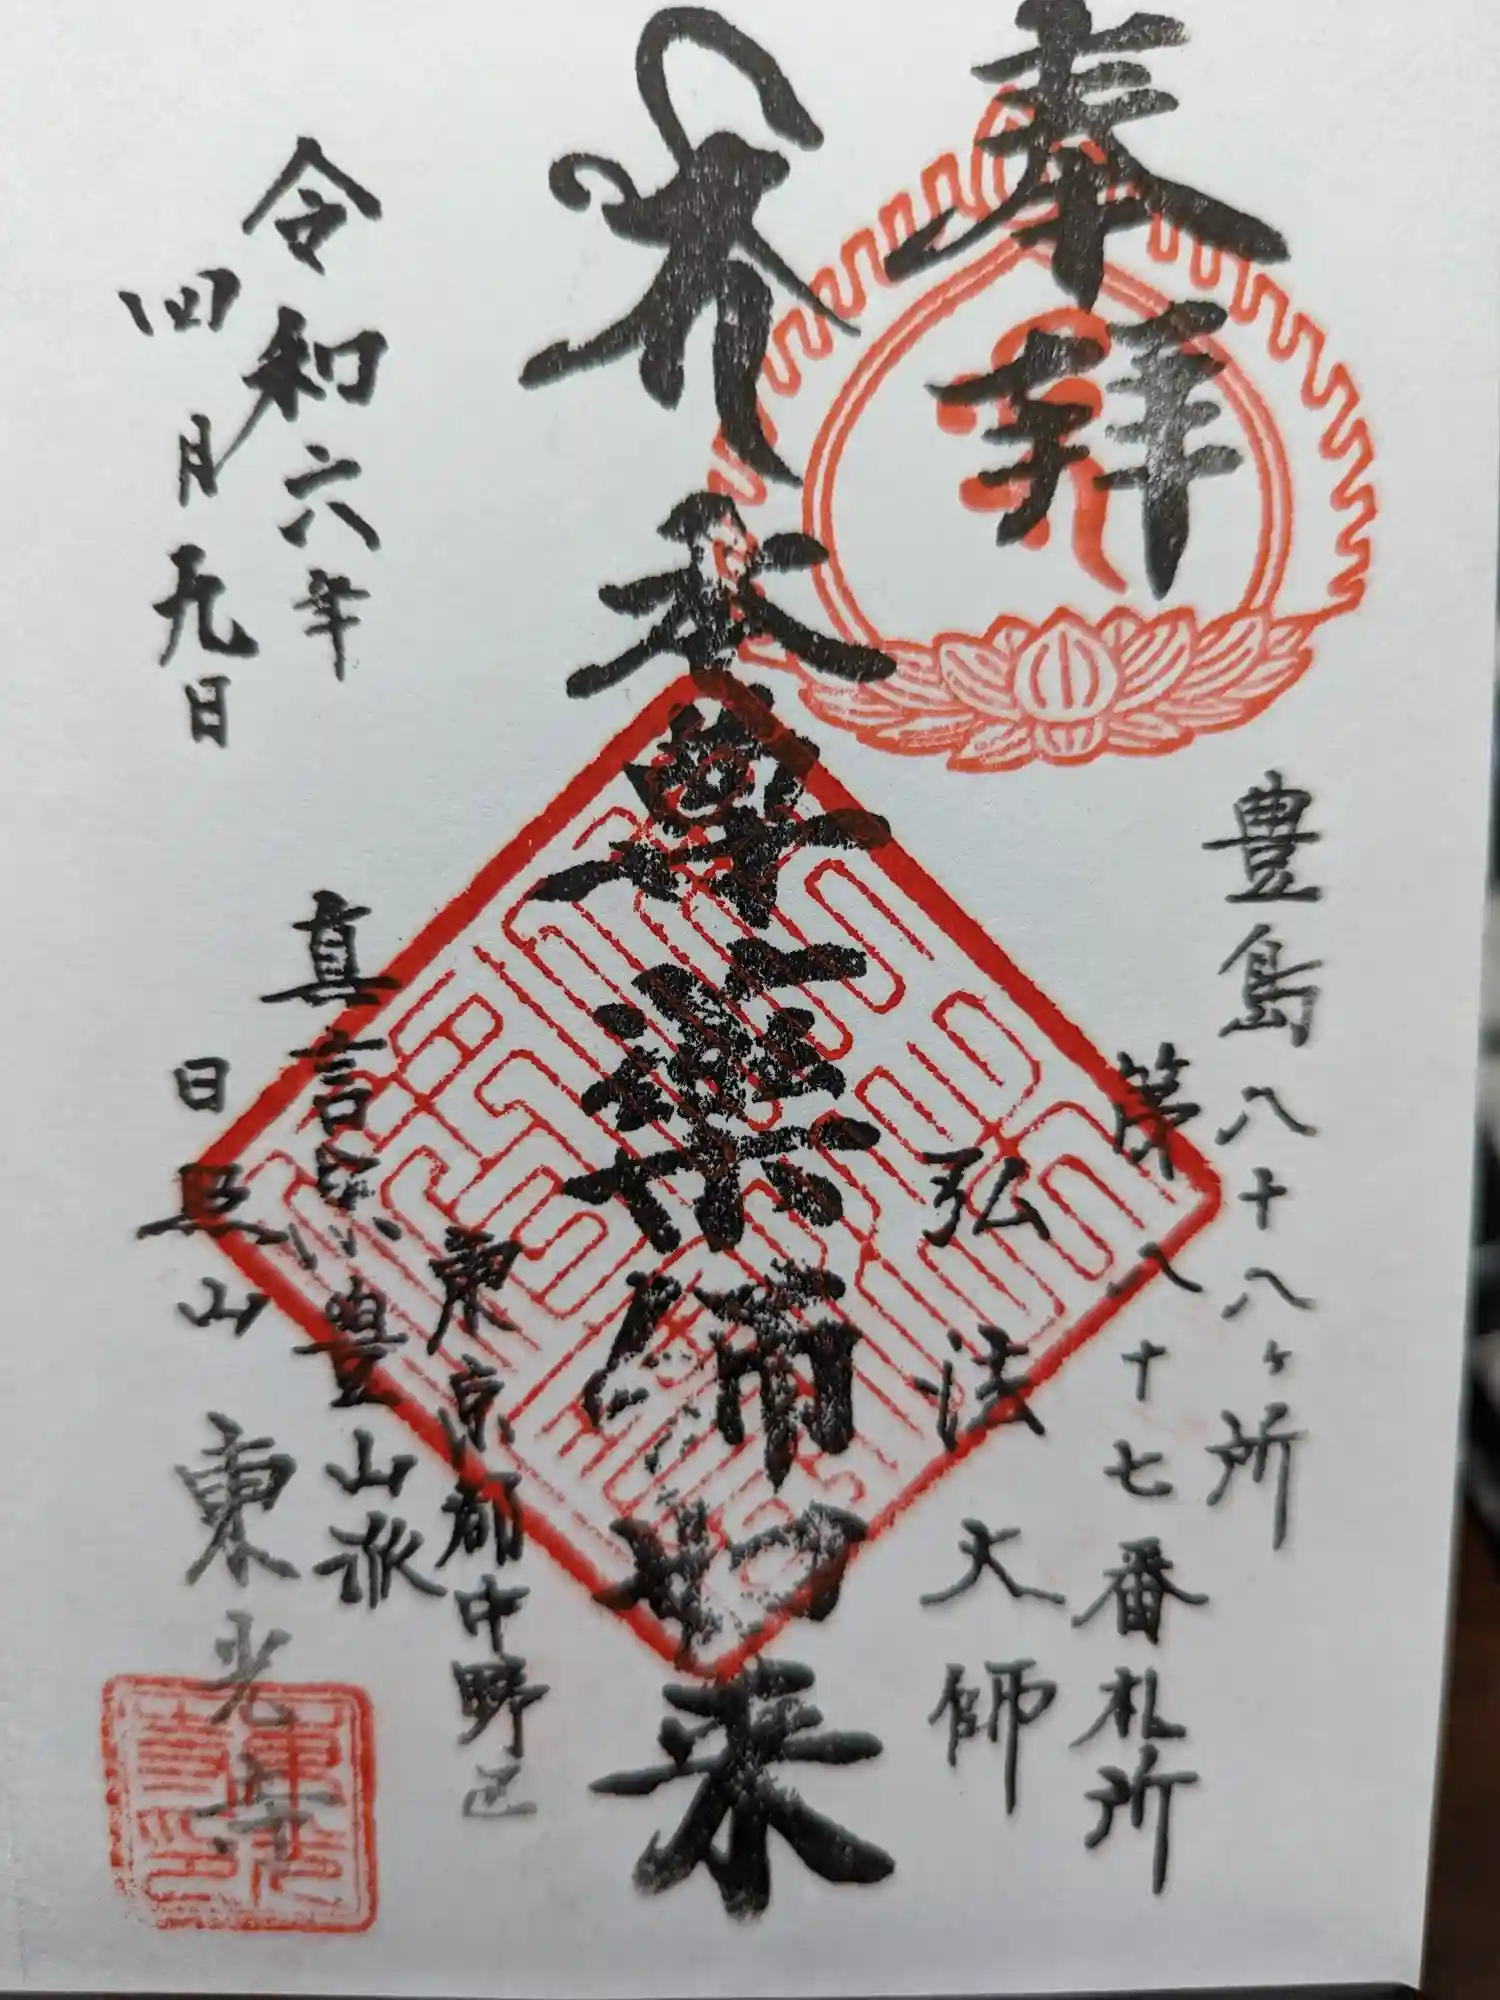 奉拝
豊島八十八ヶ所
第八十七番札所
弘法大師
本尊薬師如来
東京都中野区
真言宗豊山派
日照山東光寺
令和六年
四月九日